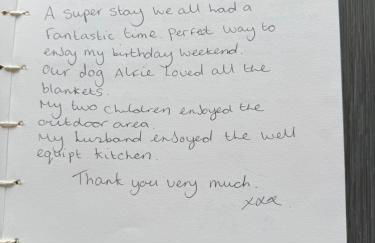 A super stay we all had a
fantastic time. Perfet way to
enjoy my birthday weekend.
Our dog Alfie loved all the
blankets.
My two children enjoyed the
outdoor area
My husband enjoyed the well
equipt kitchen.
Thank you very much.
xxx